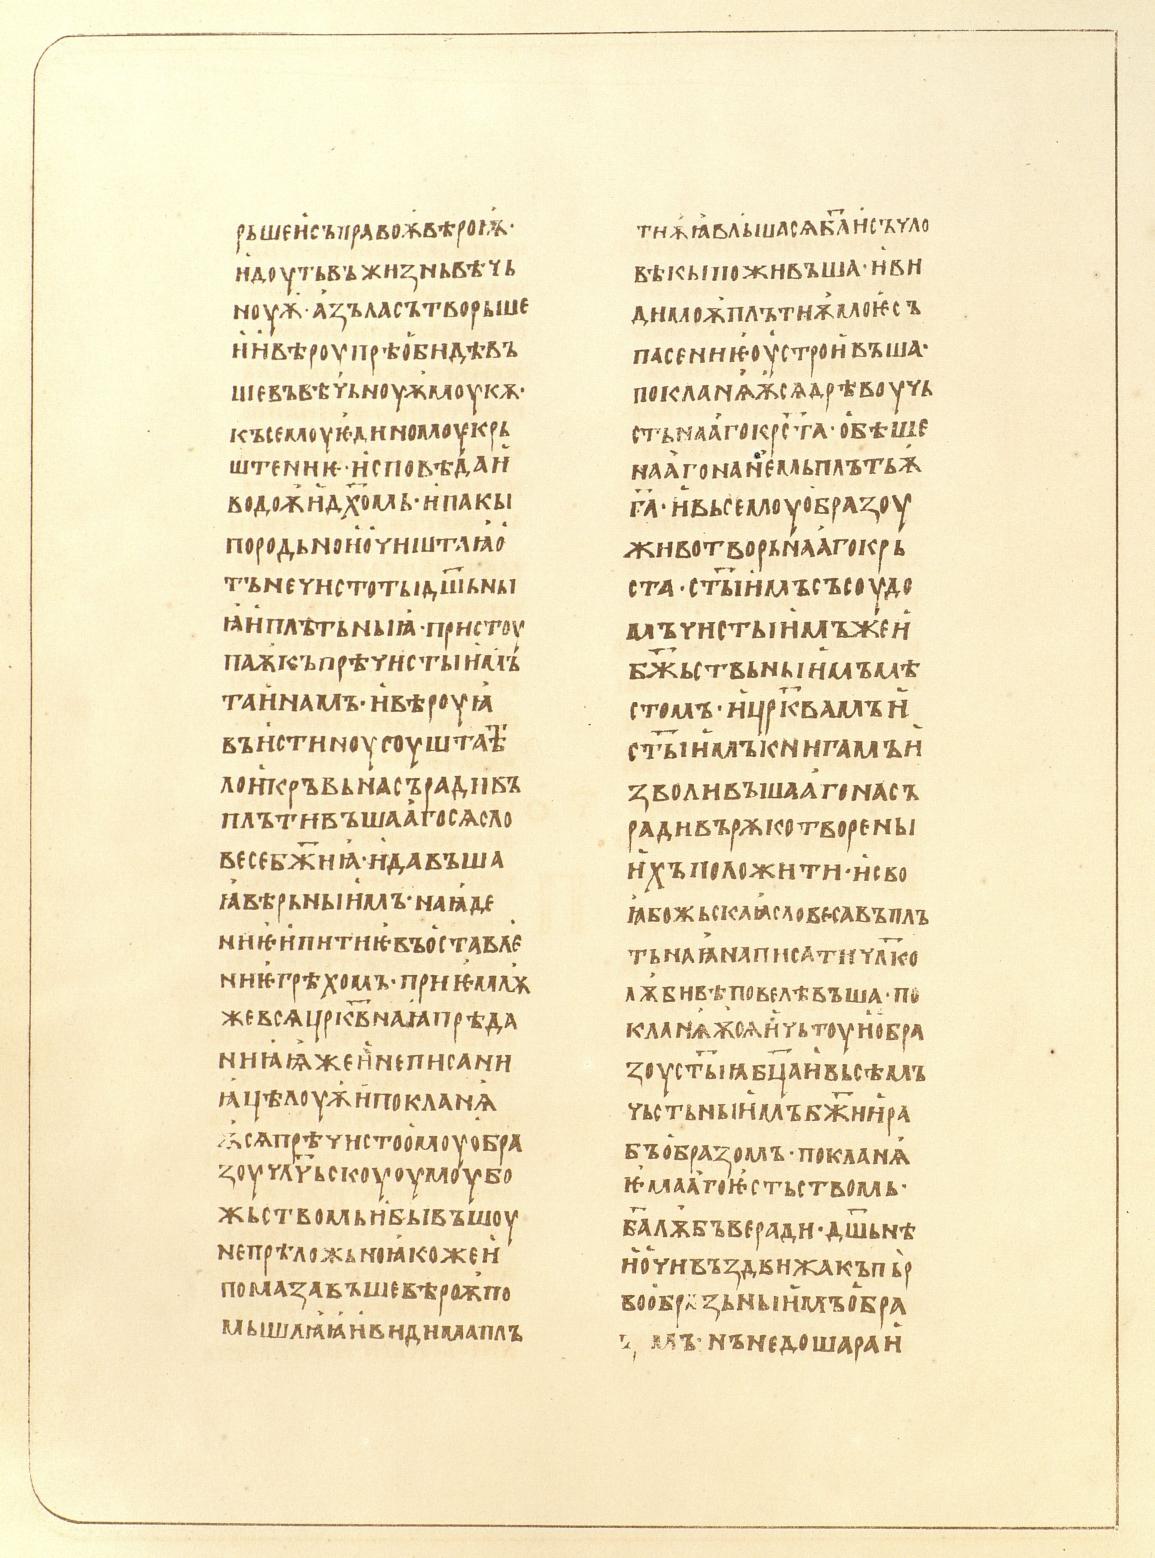 рьшеи съправоѭ вѣроѭ·
идоуть въ жизнь вѣчь
ноуѭ· а зъла сътворьше
и и вѣроу прѣобидѣвъ
ше въ вѣчьноуѭ моукѫ·
къ семоу ѥдиномоу крь
штениѥ· исповѣдаи
водоѭ и д҃хомь· и пакы
породьно и очиштаѩ о
тъ нечистоты д҃шьны
ѩ и плътьныѩ· пристоу
паѭ къ прѣчистыимъ
таинамъ· и вѣроуѩ
въ истиноу соушта тѣ
ло и кръвь насъ ради въ
плътивъшаагосѧ сло
весе б҃жиѩ· и давъша
ѩ вѣрьныимъ· на ѩде
ниѥ и питиѥ въ оставле
ниѥ грѣхомъ· приѥмлѭ
же всѧ цр҃квьнаꙗ прѣда
ниꙗ ꙗже и не писани
ꙗ цѣлоуѭ и покланѧ
ѭсѧ прѣчистоомоу обра
зоу чл҃чьскоуоумоу бо
жьствомь и бывъшоу
непрѣложьно ꙗкоже и
помазавъше вѣроѭ по
мышлꙗꙗ и видима плъ
тиѭ ꙗвльшасѧ б҃а и съ чло
вѣкы поживъша· и ви
димоѭ плътиѭ моѥ съ
пасениѥ оустроивъша·
покланѧѭсѧ дрѣвоу чь
стьнааго крс҃та· обѣше
нааго на нѥмь плътьѭ
г҃а· и вьсемоу образоу
животворьнааго крь
ста· ст҃ыимъ съсоудо
мъ чистыимъ же и
б҃жьствьныимъ мѣ
стомъ· и цр҃квамъ и
ст҃ыимъ книгамъ и
зволивъшааго насъ
ради въ рѫкотворены
ихъ положити· и сво
ꙗ божьскаꙗ словеса въ пль
тьнаꙗ написати чл҃ко
лѭбивѣ повелѣвъша· по
кланѧѭсѧ и чьтоу и обра
зоу ст҃ыꙗ б҃ца и вьсѣмъ
чьстьныимъ б҃жии ра
бъ образомъ· покланѧ
ѥмааго ѥстьствомь·
б҃а лѭбъве ради· д҃шьнѣ
и очи въздвижа къ пьр
вообразьныимъ обра
з мъ· нъ не до шара и